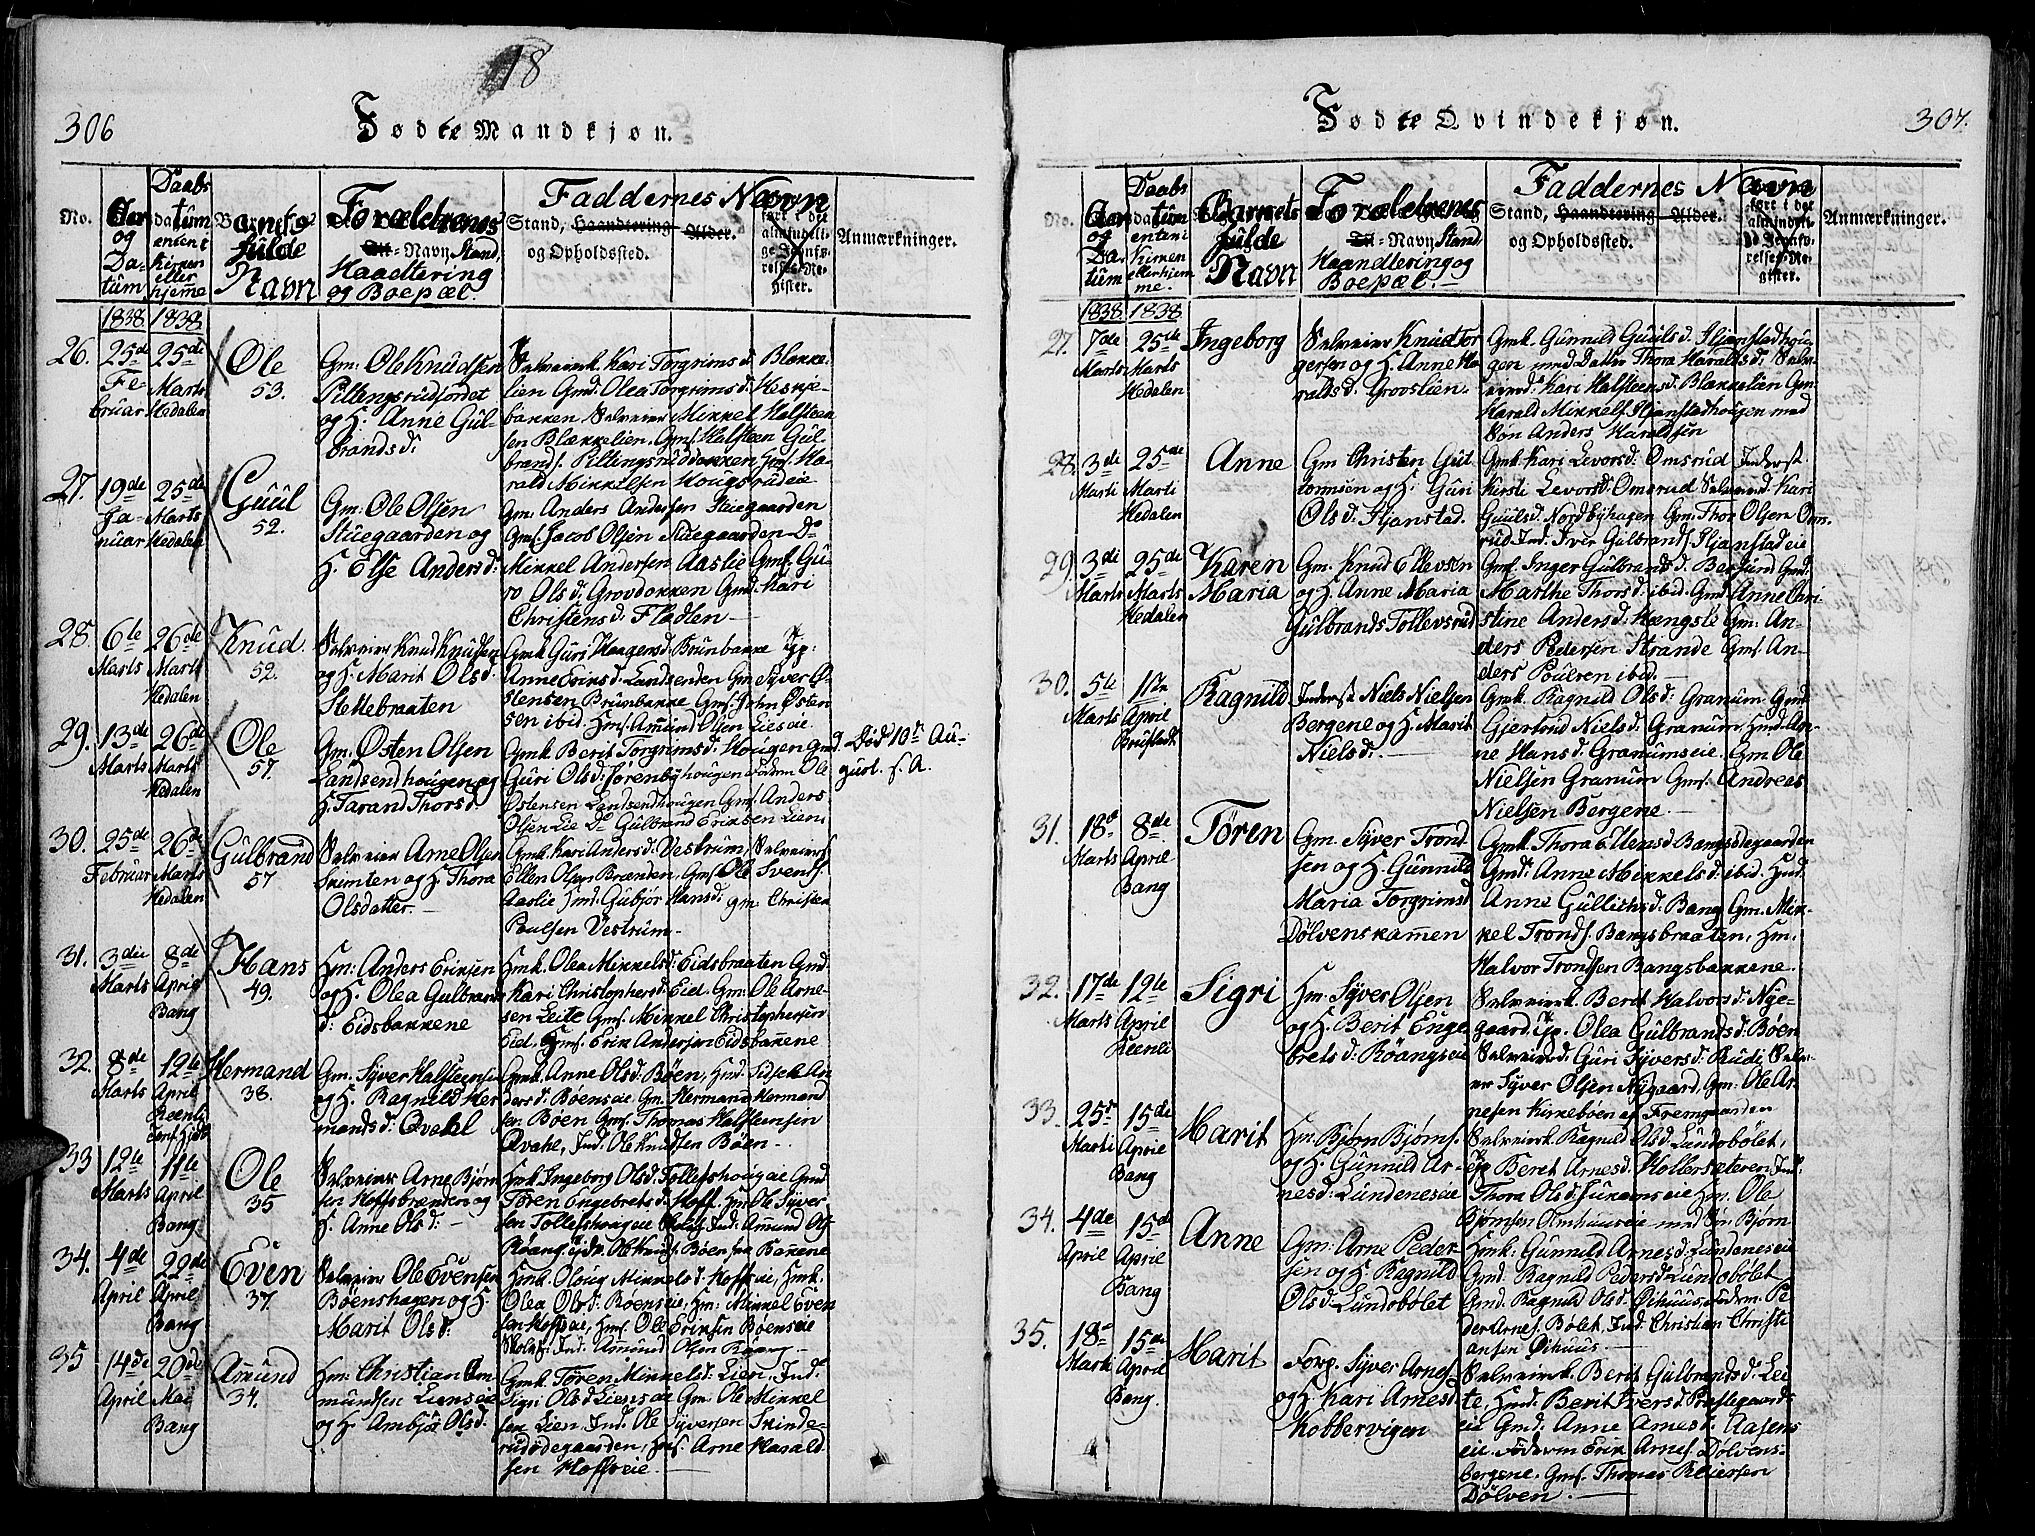 18
306
Födte Mandkjøn.
No.
Aar og Datum
Daabs datum enten i Kirken eller hjemme
Barnets fulde Navn
Forældrenes Navn Stand, Haandtering og Boepæl.
Faddernes Navn
Stand, Haandtering Alder.
og Opholdssted.
Anmærkninger.
1838 1838
26. 25de Februar
25de Marts Hedalen
Ole
53.
Gm: Ole Knudsen
Piltingsrudjordet
og H. Anne Gul-
brandsd:
Selveierk Kari Torgrimsd: Blække-
lien Gmd: Olea Torgrimsd: Heskje-
bakken Selveier Mikkel Halsteen-
sen Blækkelien, Gms. Halsteen Gul-
brands. Piltingsruddokken Hms. Ha-
rald Mikkelsen Hougsrudeie
27. 19de Januar
25de Marts Hedalen
Guul
52.
Gm: Ole Olsen
Stuegaarden og
H. Else Andersd:
Gm: Anders Andersen Stuegaarden
Gms. Jacob Olsen Stuegaarden Do
Mikkel Andersen Aaslie Gmk. Gu-
ro Olsd: Grovdokken Gmd. Kari
Christensd: Fladlen
28. 6te Marts
26de Marts Hedalen
Knud.
52.
Selveier Knud Knudsen
og H. Marit Olsd:
Hellebraaten
Gmk Guri Haagensd: Brunbakke Yp:
Anne Eriksd: Landsenden Gm Syver Ø-
stensen Brunbakke Gms. John Østen
sen ibid. Hms. Amund Olsen Lieseie
29. 13de Marts
26de Marts Hedalen
Ole
57.
Gm: Østen Olsen
Landsendhougen og
H. Tarand Thorsd:
Gmk Berit Torgrimsd: Hougen Gmd.
Guri Olsd: Sørenbyhougen Foderm Ole
Østensen Landsendhougen Gms. Anders
Olsen Lie Do Gulbrand Eriksen Lien.
Död 10de Au-
gust. s. A.
30. 25de Februar
26de Marts Hedalen
Gulbrand
57
Selveier Arne Olsen
Skimten og H. Thora
Olsdatter.
Gmk. Kari Andersd: Vestrum, Selveiers
Ellen Olsen Brænden, Gms. Ole Svens.
Aaslie Hmd. Gubjør Hansd: gm. Christen
Poulsen Vestrum
31. 3die Marts
8de April Bang
Hans
49.
Hm: Anders Eriksen
og H. Olea Gulbrands
d: Eidsbakkene
Hmk. Olea Mikkelsd: Eidsbraaten Gmd.
Kari Christophersd: Eid. Gm: Ole Arne-
sen Leite Gms. Mikkel Christophersen
Eid, Hms. Erik Andersen Eidsbakkene
32. 8de Marts
12te April Reenli
Hermand
38.
Gm: Syver Halsteensen
og H. Ragnild Her
mandsd: Qvahl
Gmk. Anne Olsd: Böen, Hmd: Sidsel An
dersd: Böenseie, Gm. Hermand Hermand
sen Böen Gms. Thomas Halsteensen
Qvahle, Ind: Ole Knudsen Böen
33 12te Marts
11te April Bang
Ole
35
Selveier Arne Bjørn
sen Hoffsbrenden og
H. Anne Olsd:
Hmk Ingeborg Olsd. Tollefshougeie Gmd
Tören Engebretsd: Hoff, Hm Ole Syver
sen Tollefshougeie Ind: Amund Ols.
Röang Ole Knuds. Böen fra Bakkene
34. 4de April
22de April Bang
Even
37.
Selveier Ole Evensen
Böenshagen og H.
Marit Olsd:
Hmk. Oloug Mikkelsd: Hoffseie, Hmk.
Olea Olsd: Böenseie, Hm: Mikkel Even
sen Hoffseie, Hms. Ole Eriksen Böenseie
Ind: Amund Olsen Röang
35 14de April
20de Mai Bang
Amund
34.
Hm: Christian Am
mundsen Lienseie
og H. Ambjør Olsd:
Gmk. Tören Mikkelsd: Lien, Ind:
Sigri Olsd Lienseie Gm: Ole Mikkel
sen Lien, Ind: Ole Syversen Skinde-
rudödegaarden, Hms. Arne Harald-
sen Hoffseie
Födte Qvindekjøn.
307.
No.
Aar og Datum
Daabs datum enten i Kirken eller hjemme.
Barnets fulde Navn
Forældrenes Navn Stand Haandtering og Boepæl.
Faddernes Navn
Stand, Haandtering Alder.
og Opholdssted.
Anmærkninger.
1838. 1838
27. 7de Marts
25de Marts Hedalen
Ingeborg
Selveier Knud Tor
gersen og H. Anne Ha
raldsd: Grovslien.
Gmk. Gunnild Guulsd. Hjanstadhou-
gen med Datter Thora Haraldsd: Selv-
eierd: Kari Halsteensd: Blækkelien Gm
Harald Mikkels. Hjanstadhougen med
Søn Anders Haraldsen
28. 3de Marti
25de Marti Hedalen
Anne
Gm Christen Gut
tormsen og H. Guri
Olsd: Hjanstad.
Gmk Kari Levorsd: Omsrud Inderst
Kirsti Levorsd: Omsrud Selveierd Kari
Guulsd: Nordbyhagen Gm: Thor Olsen Oms-
rud Ind. Iver Gulbrands. Hjanstadeie
29. 3de Marts
25de Marts Hedalen
Karen
Maria
Gm. Knud Ellevsen
og H. Anne Maria
Gulbrandsd Tollevsrud
Gmk. Inger Gulbrandsd: Berfurd Gmd.
Marthe Thorsd: ibid. Gmd. Anne Chri-
stine Andersd: Hængsle Gm: An-
ders Pedersen Strande Gms. An-
ders Poulsen ibid.
30. 5te Marts
1ste April Bruflat
Ragnild
Inderst Niels Nielsen
Bergene og H. Marit
Nielsd:
Gmk. Ragnild Olsd: Granum Gmd
Gjertrud Nielsd: Granum, Hmd. An-
ne Hansd: Granumseie. Gm. Ole
Nielsen Granum Gms. Andreas
Nielsen Bergene.
31. 18de Marts
8de April Bang
Tören
Gm. Syver Trond
sen og H. Gunnild
Maria Torgrimsd
Dölvenskammen
Gmk. Thora Bangsdlegaarden
Gmd: Anne Mikkelsd: ibid. Hmd.
Anne Gullichsd: Bang Gm. Mik-
kel Tronds. Bangsbraaten, Hm.
Halvor Trondsen Bangsbakkene.
32. 17de Marts
12te April Reenli
Sigri
Hm. Syver Olsen
og H. Berit Enge
bretsd: Röangseie
Selveierk. Berit Halvorsd: Nye-
gaard, Yp. Olea Gulbrandsd: Böen
Selveierd: Guri Syversd: Rudi, Selv-
eier Syver Olsen Nygaard, Gm. Ole Ar-
nesen Kirkebøen af Fremgaarden
33. 25de Marti
15de April Bang
Marit
Hm. Bjørn Bjørns.
og H. Gunnild Ar-
nesd: Lundeneseie
Selveierk Ragnild Olsd: Lundebölet,
Yp Beret Arnesd: Hollersæteren, Ind:
Thora Olsd: Hm. Ole
Bjørnsen Olmhuuseie med Søn Bjørn
34. 4de April
15de April Bang
Anne
Gm: Arne Peder-
sen og H. Ragnild
Olsd: Lundebölet
Hmk: Gunnild Arnesd: Lundeneseie
Gmd. Ragnild Pedersd: Lundebölet
Gmd. Ragnild Olsd: Öihuus, Foderm: Pe
der Arnes. Bölet, Ind. Christian Christi
ansen Öihuus
35. 18de Marti
15de April Bang.
Marit
Forp. Syver Arnes.
og H. Kari Arnesd:
Kobbervigen
Selveierk. Berit Gulbrandsd: Lei
te, Hmd: Berit Iversd: Præstegaards
eie Gmd: Anne Arnesd: Aasens
eie. Foderm Erik Arnes. Dölvens-
bergene, Gms. Thomas Pedersen
Dölven.